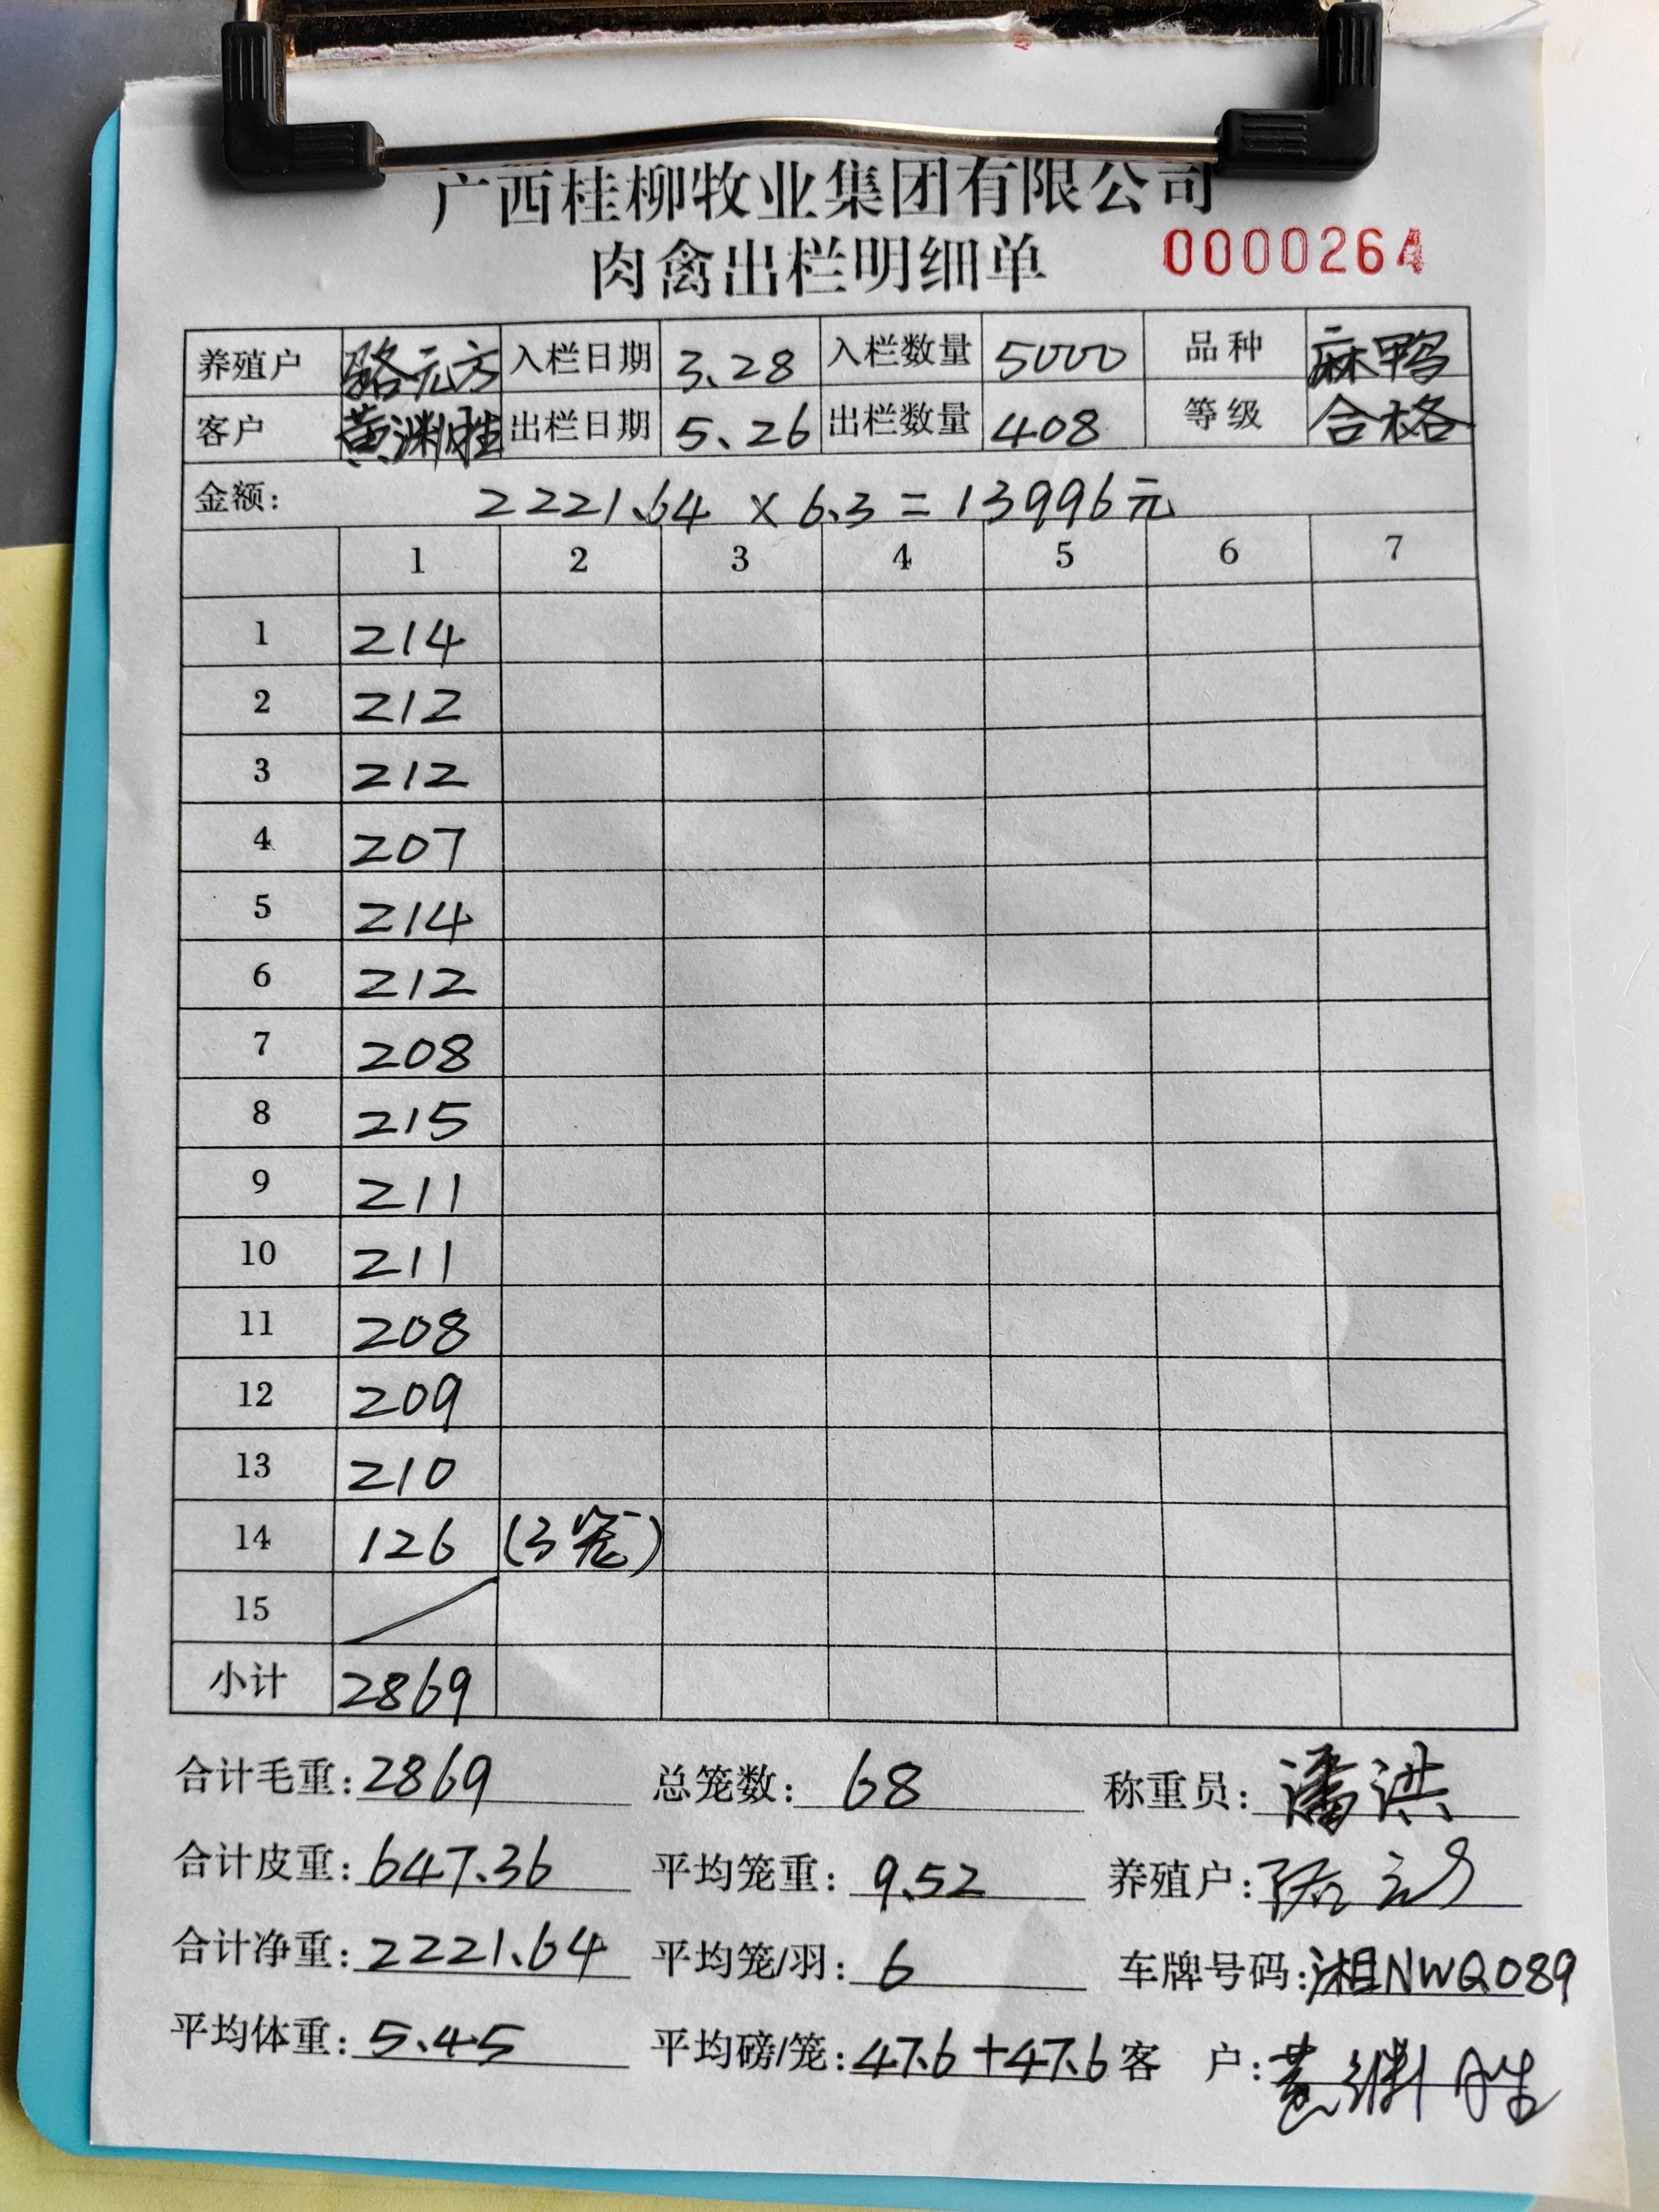 广西桂柳牧业集团有限公司
肉禽出栏明细单 0000264
养殖户 骆元方 入栏日期 3.28 入栏数量 5000 品种 麻鸭
客户 黄渊胜 出栏日期 5.26 出栏数量 408 等级 合格
金额: 2221.64 × 6.3 = 13996元
1 2 3 4 5 6 7
1 214
2 212
3 212
4 207
5 214
6 212
7 208
8 215
9 211
10 211
11 208
12 209
13 210
14 126 (3笼)
15
小计 2869
合计毛重: 2869 总笼数: 68 称重员: 潘洪
合计皮重: 647.36 平均笼重: 9.52 养殖户:
合计净重: 2221.64 平均笼/羽: 6 车牌号码: 湘NWQ089
平均体重: 5.45 平均磅/笼: 47.6+47.6 客 户: 黄渊胜